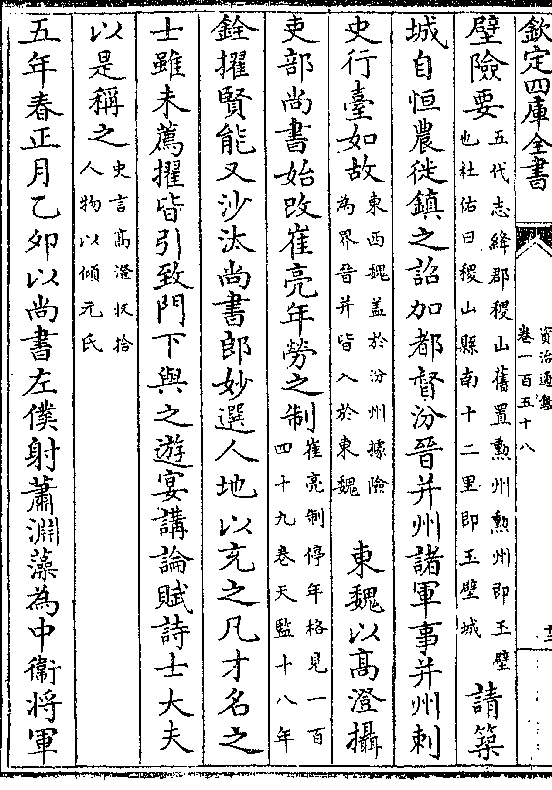 欽定四庫全書
資治通鑑
卷一百五十八
壁險要
五代志絳郡稷山舊置勲州勲州即玉壁
也杜佑曰稷山縣南十二里即玉壁城
請築
城自恒農徙鎮之詔加都督汾晉并州諸軍事并州刺
史行臺如故
東西魏蓋於汾州據險
為界晉并皆入於東魏
東魏以高澄攝
吏部尚書始改崔亮年勞之制
崔亮制停年格見一百
四十九卷天監十八年
銓擢賢能又沙汰尚書郎妙選人地以充之凡才名之
士雖未薦擢皆引致門下與之遊宴講論賦詩士大夫
以是稱之
史言高澄收拾
人物以傾元氏
五年春正月乙卯以尚書左僕射蕭淵藻為中衛將軍